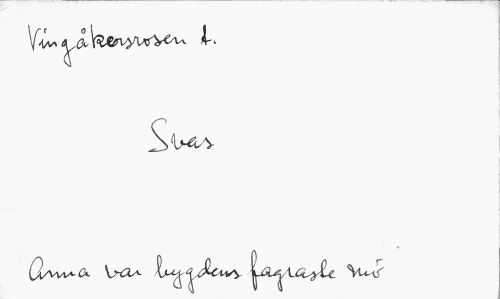 Vingåkersrosen t.
Svas
Anna var bygdens fagraste mö